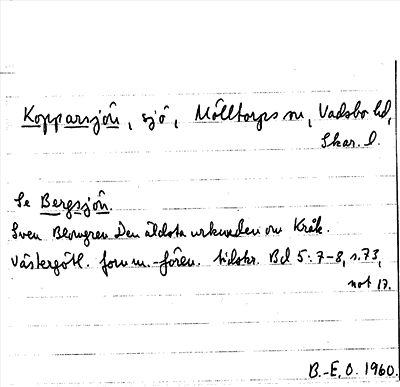 Kopparsjön, sjö, Mölltorps sn, Vadsbo hd,
Skar. l.
Se Bergsjön.
Sven Blomgren Den äldsta urkunden om Kråk.
Västergötl. fornm.-fören. tidskr. Bd 5:7-8, s.73,
not 17.
B.-E.O. 1960.